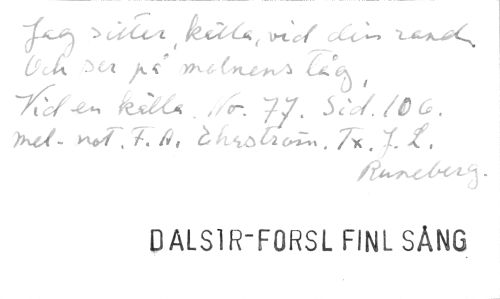 Jag sitter, källa, vid din rand
Och ser på molnens tåg,
Vid en källa. No. 77. Sid. 106.
mel. not. F. A. Ehrström. Tx. J. L.
Runeberg.
DALSTR-FORSL FINL SÅNG